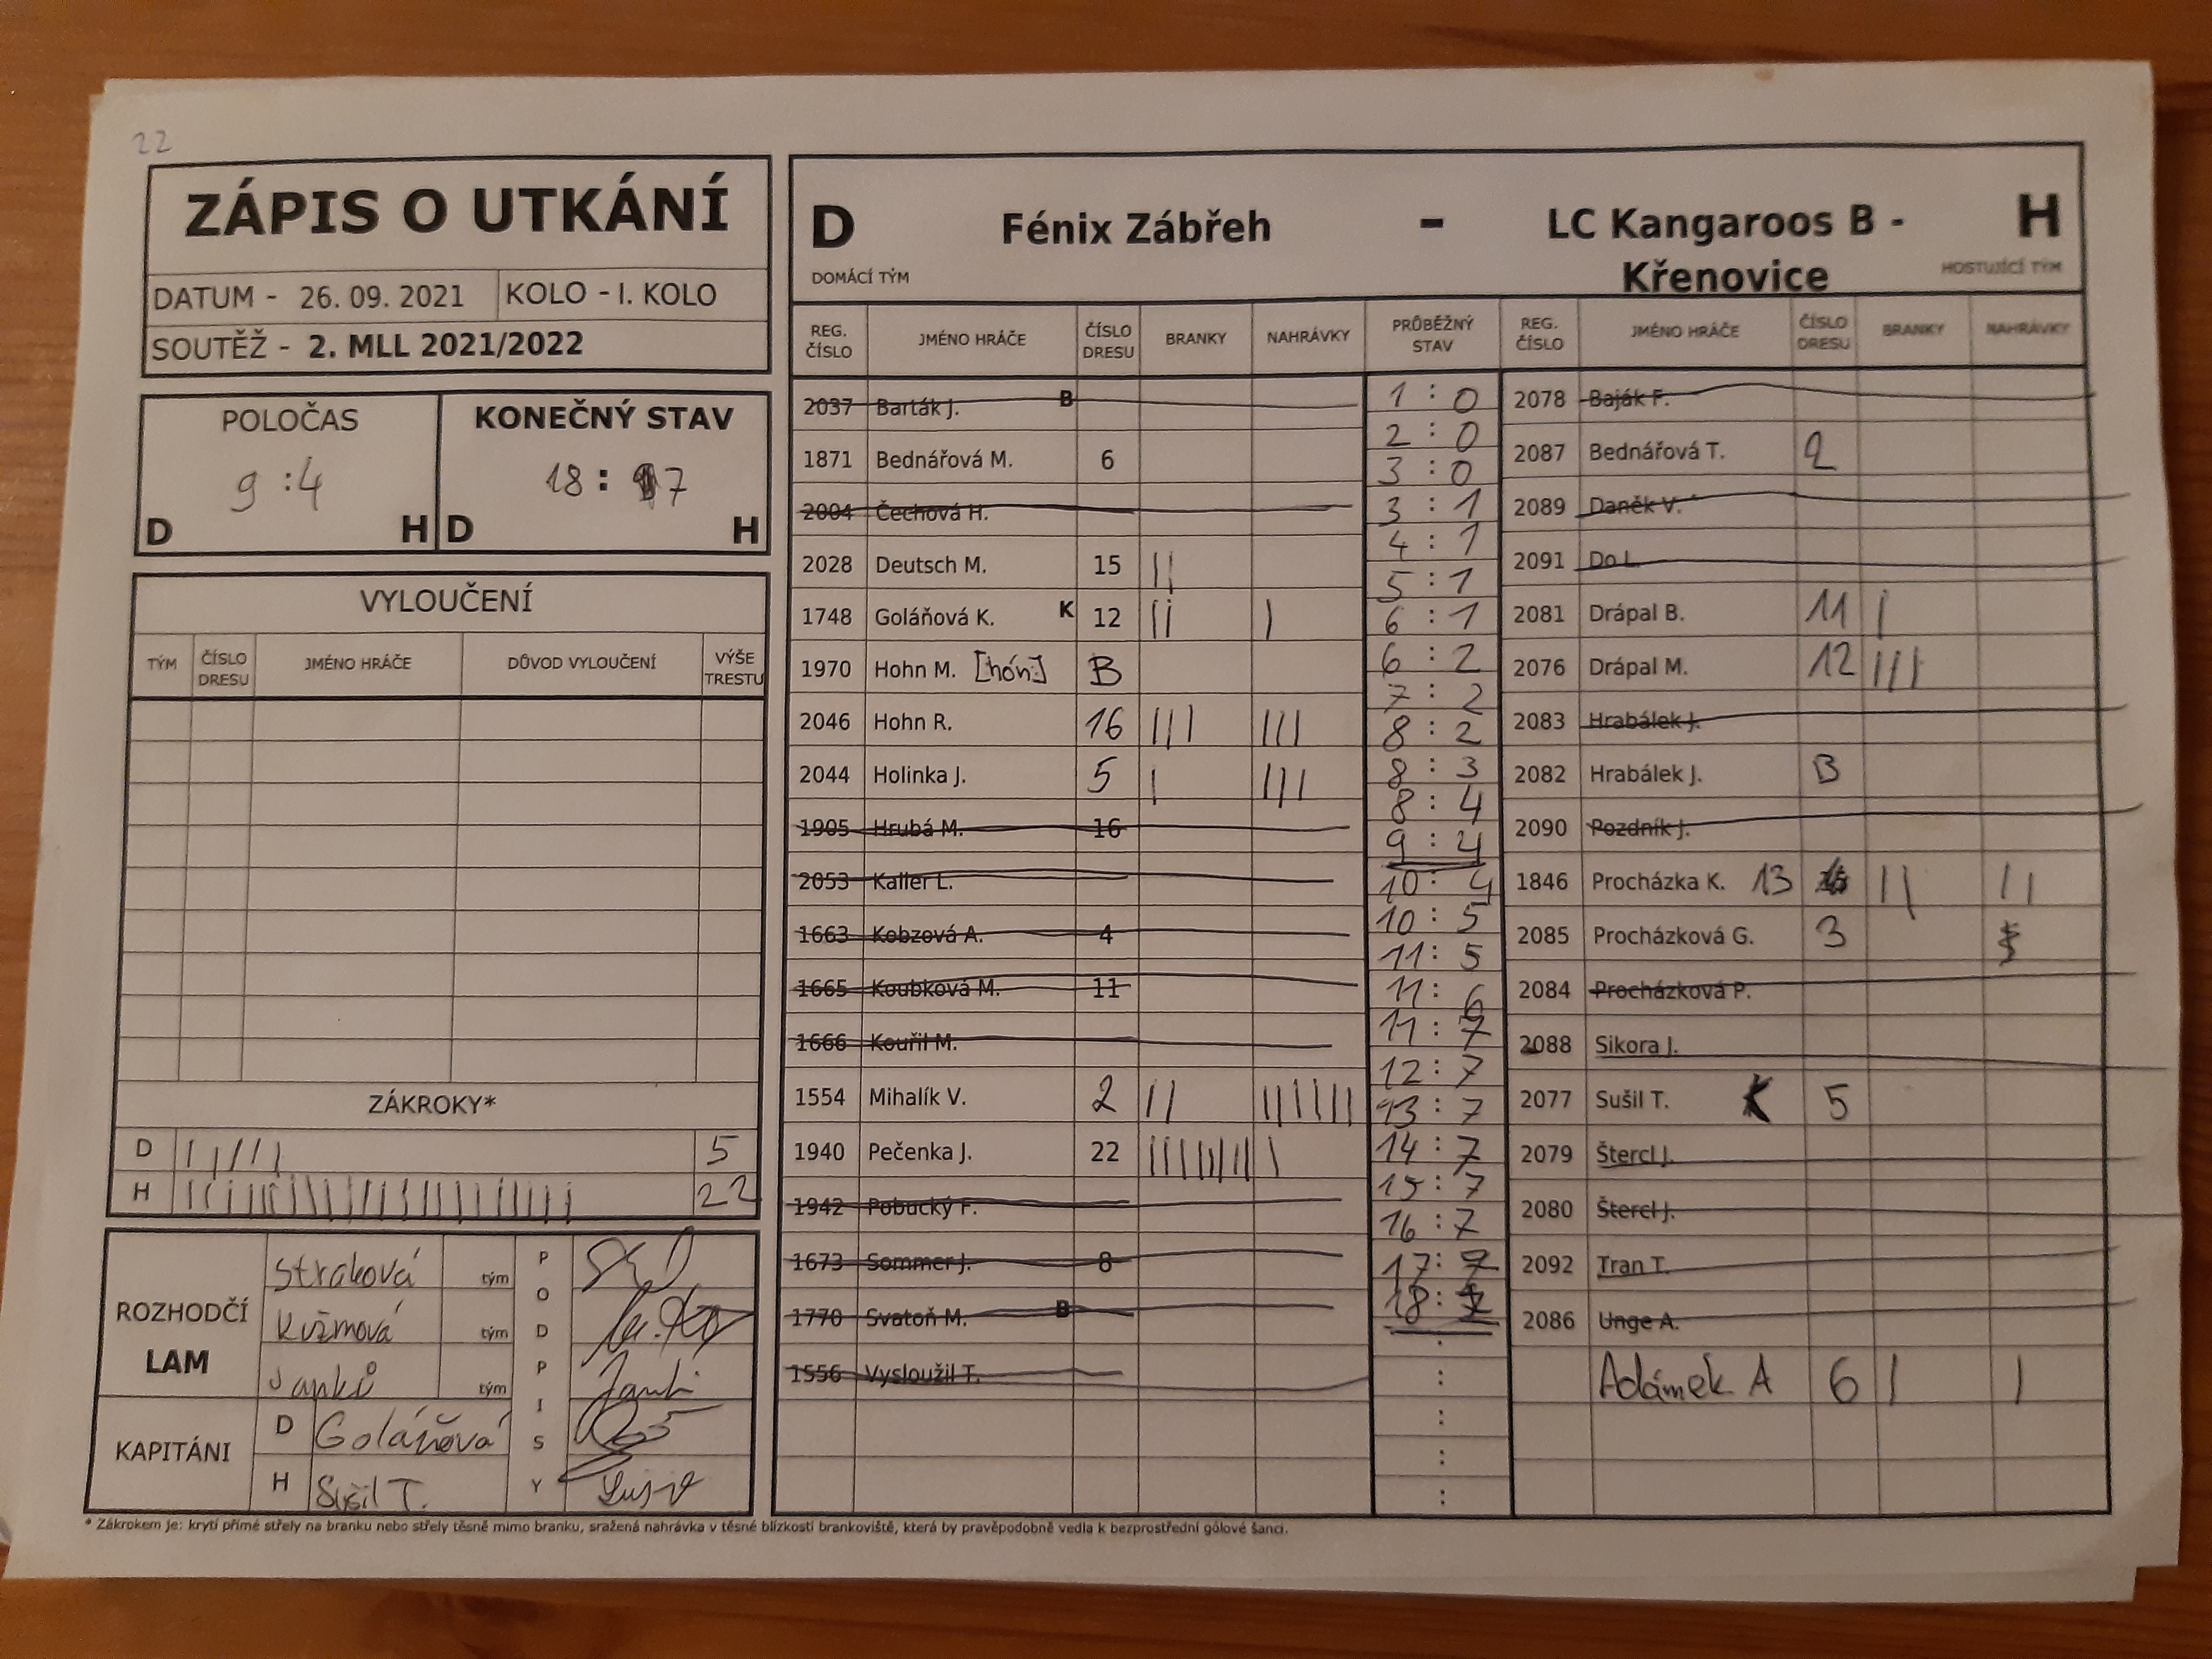 22
ZÁPIS O UTKÁNÍ
DATUM - 26. 09. 2021 KOLO - I. KOLO
SOUTĚŽ - 2. MLL 2021/2022
POLOČAS KONEČNÝ STAV
9 : 4 18 : 7
D H D H
VYLOUČENÍ
TÝM ČÍSLO DRESU JMÉNO HRÁČE DŮVOD VYLOUČENÍ VÝŠE TRESTU
ZÁKROKY*
D 5
H 22
ROZHODČÍ LAM
Straková tým
Kuzmová tým
Janků tým
PODPISY
KAPITÁNI
D Goláňová
H Sušil T.
D Fénix Zábřeh - LC Kangaroos B - Křenovice H
DOMÁCÍ TÝM HOSTUJÍCÍ TÝM
REG. ČÍSLO JMÉNO HRÁČE ČÍSLO DRESU BRANKY NAHRÁVKY PRŮBĚŽNÝ STAV REG. ČÍSLO JMÉNO HRÁČE ČÍSLO DRESU BRANKY NAHRÁVKY
2037 Barták J. B
1871 Bednářová M. 6
2004 Čechová H.
2028 Deutsch M. 15 ||
1748 Goláňová K. K 12 || |
1970 Hohn M. [hón] B
2046 Hohn R. 16 ||| |||
2044 Holinka J. 5 | |||
1905 Hrubá M. 16
2053 Kaller L.
1663 Kobzová A. 4
1665 Koubková M. 11
1666 Kouřil M.
1554 Mihalík V. 2 || ||||||
1940 Pečenka J. 22 |||||||| |
1942 Pobucký F.
1673 Sommer J. 8
1770 Svatoň M. B
1556 Vysloužil T.
1 : 0
2 : 0
3 : 0
3 : 1
4 : 1
5 : 1
6 : 1
6 : 2
7 : 2
8 : 2
8 : 3
8 : 4
9 : 4
10 : 4
10 : 5
11 : 5
11 : 6
11 : 7
12 : 7
13 : 7
14 : 7
15 : 7
16 : 7
17 : 7
18 : 7
2078 Baják F.
2087 Bednářová T. 2
2089 Daněk V.
2091 Do L.
2081 Drápal B. 11 |
2076 Drápal M. 12 |||
2083 Hrabálek J.
2082 Hrabálek J. B
2090 Pozdník J.
1846 Procházka K. 13 || ||
2085 Procházková G. 3
2084 Procházková P.
2088 Sikora J.
2077 Sušil T. K 5
2079 Štercl J.
2080 Štercl J.
2092 Tran T.
2086 Unge A.
Adámek A 6 | |
* Zákrokem je: krytí přímé střely na branku nebo střely těsně mimo branku, sražená nahrávka v těsné blízkosti brankoviště, která by pravěpodobně vedla k bezprostřední gólové šanci.